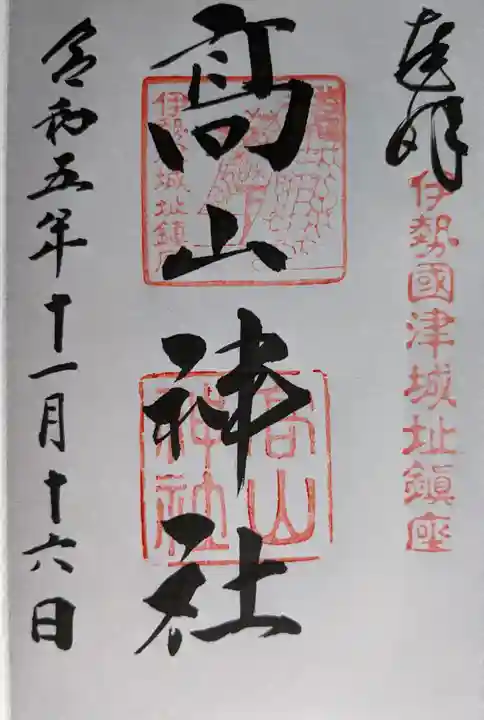 奉拝
伊勢國津城址鎮座
髙山神社
伊勢津城址鎮座
高山神社
令和五年十一月十六日